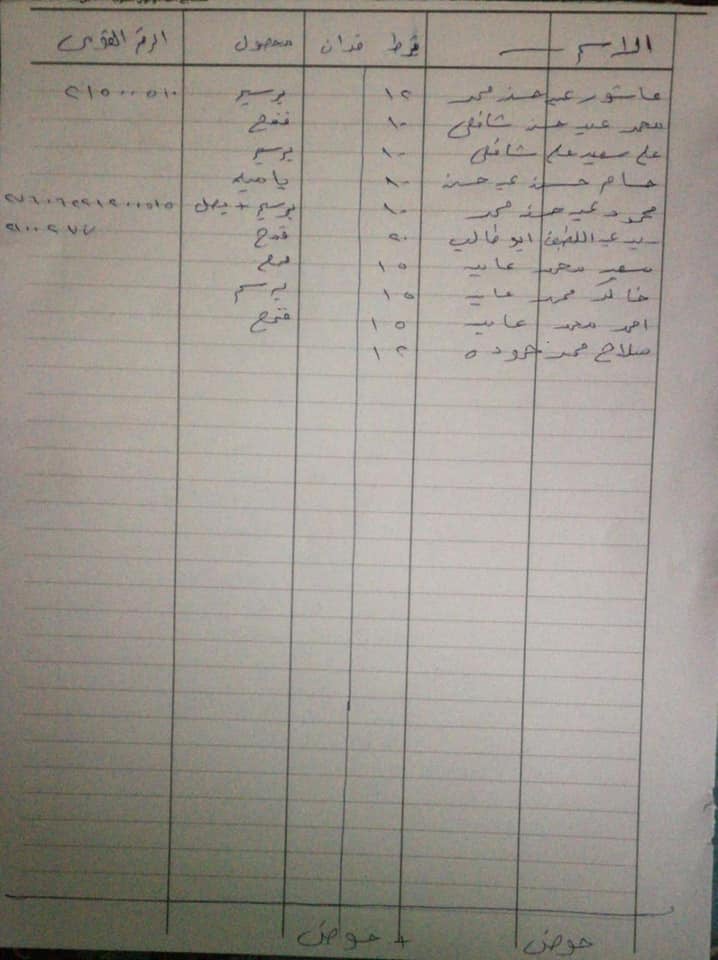 الاسم قيرط فدان محصول الرقم القومى
عاشور عبد حسن محمد ١٢ برسيم ٢١٥٠٠٥١٠
محمد عبد حسن شافعى ١٠ قمح
على سعيد على شافعى ١٠ برسيم
حسام حسن عبد حسن ١٠ باميه
محمود عبد حسن محمد ١٠ برسيم + بصل
سيد عبد اللطيف ابو طالب ٢٠ قمح
سعيد محمد عابد ١٥ قمح
خالد محمد عابد ١٥ برسيم
احمد محمد عابد ١٥ قمح
صلاح محمد حموده ١٢
حوض + حوض